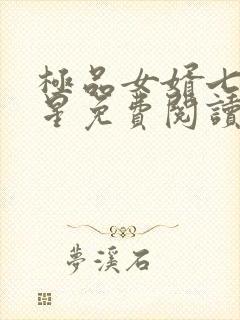 極品女婿七
星免費閱讀
夢溪石